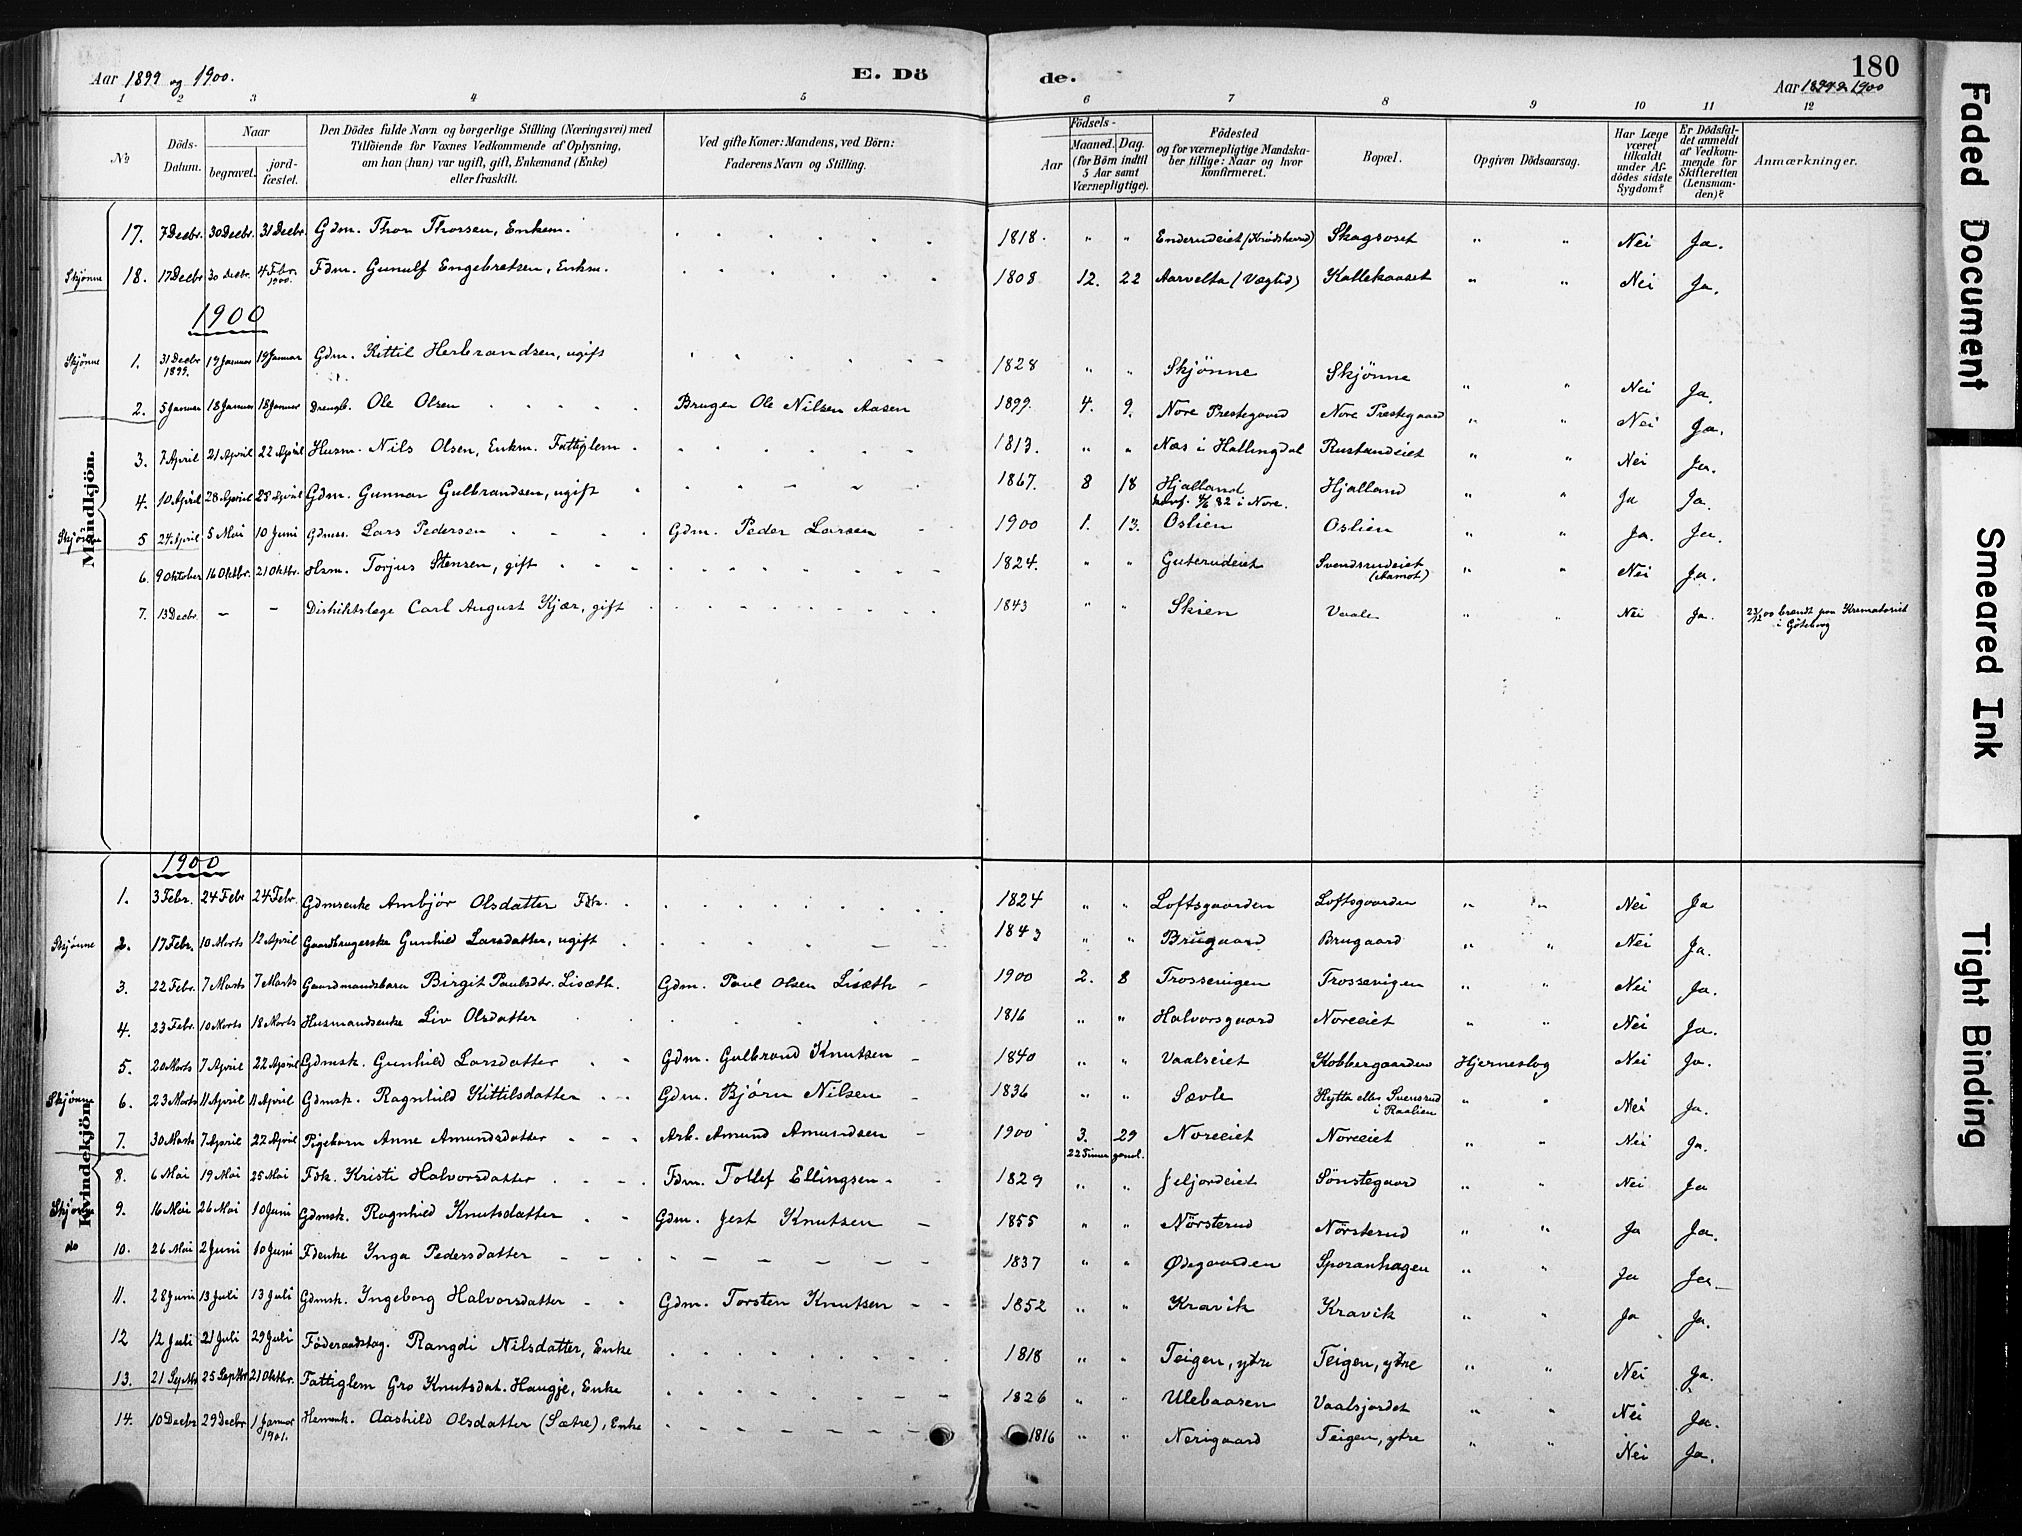 Aar 1899 og 1900.
E. Dö
de.
180
Aar 1899 & 1900
1 2 3 4 5 6 7 8 9 10 11 12
№
Döds-Datum.
Naar
begravet.
jord-fæstet.
Den Dödes fulde Navn og borgerlige Stilling (Næringsvei) med
Tilföiende for Voxnes Vedkommende af Oplysning,
om han (hun) var ugift, gift, Enkemand (Enke)
eller fraskilt.
Ved gifte Koner: Mandens, ved Börn:
Faderens Navn og Stilling.
Födsels-
Aar
Maaned. Dag.
(for Börn indtil
5 Aar samt
Værnepligtige).
Födested
og for værnepligtige Mandska-
ber tillige: Naar og hvor
konfirmeret.
Bopæl.
Opgiven Dödsaarsag.
Har Læge
været
tilkaldt
under Af-
dödes sidste
Sygdom?
Er Dödsfal-
det anmeldt
af Vedkom-
mende for
Skifteretten
(Lensman-
den)?
Anmærkninger.
Mandkjön.
17. 7 Decbr. 30 Decbr. 31 Decbr. Gdm. Thor Thorsen, Enkem. 1818. " " Enderudeiet (Krødsherred) Skagsoset " " Nei Ja.
Skjønne 18. 17 Decbr 30 Decbr. 4 Febr. 1900. Fdm. Gunulf Engebretsen, Enkm. 1808 12. 22 Aarvelta (Vægtid) Kallekaaset " " Nei Ja.
1900
Skjønne 1. 31 Decbr 1899. 19 Januar 19 Januar Gdm. Kittil Herbrandsen, ugift 1828 " " Skjönne Skjönne " " Nei Ja.
2. 5 Januar 18 Januar 18 Januar Drengb. Ole Olsen Bruger Ole Nilsen Aasen 1899. 4. 9. Nore Prestegaard Nore Prestegaard " " Nei Ja.
3. 7 April 21 April 22 April Husm. Nils Olsen, Enkm. Fattiglem 1813. " " Næs i Hallingdal Rustandeiet " " Nei Ja.
4. 10 April 28 April 28 April Gdm. Gunnar Gulbrandsen, ugift 1867. 8 18 Hjalland Hjalland " " Ja Ja.
konf. 4/6 82 i Nore.
Skjønne 5 24 April 5 Mai 10 Juni Gdmss. Lars Pedersen Gdm. Peder Larsen 1900 1. 13. Oslien Oslien " " Ja. Ja.
6. 9 Oktober 16 Oktbr. 21 Oktbr. Hsm. Torjus Stensen, gift 1824. " " Guterudeiet Svendsrudeiet (Aamot) " " Nei Ja.
7. 13 Decbr. – – Distriktslæge Carl August Kjær, gift 1843 " " Skien Vaale " " Nei Ja. 23/12 00 brændt paa Krematoriet
i Göteborg
1900
Kvindekjön.
1. 3 Febr. 24 Febr 24 Febr. Gdmsenke Ambjör Olsdatter Fdk. 1824 " " Loftsgaarden Loftsgaarden " " Nei Ja
Skjønne 2. 17 Febr. 10 Marts 12 April Gaardbrugerske Gunhild Larsdatter, ugift 1843 " " Brugaard Brugaard " " Nei Ja.
3. 22 Febr. 7 Marts 7 Marts Gaardmandsbarn Birgit Paulsdtr. Lisæth. Gdm. Paul Olsen Lisæth 1900 2. 8 Trossevigen Trossevigen " " Nei Ja.
4. 23 Febr. 10 Marts 18 Marts Husmandsenke Liv Olsdatter 1816 " " Halvorsgaard Noreeiet " " Nei Ja.
5. 20 Marts 7 April 22 April Gdmsk. Gunhild Larsdatter Gdm. Gulbrand Knutsen 1840 " " Vaalseiet Kobbergaarden Hjerneslag Nei Ja.
Skjønne 6. 23 Marts 11 April 11 April Gdmsk. Ragnhild Kittilsdatter Gdm. Bjørn Nilsen 1836 " " Sævle Hytta eller Svensrud i Raalien " " Nei Ja.
7. 30 Marts 7 April 22 April Pigebarn Anne Amundsdatter Arb. Amund Amundsen 1900 3. 29 Noreeiet Noreeiet " " Nei Ja.
22 Timer gaml.
8. 6 Mai 19 Mai 25 Mai Fdk. Kristi Halvorsdatter Fdm. Tollef Ellingsen 1829 " " Jeljordeiet Sönstegaard " " Nei Ja
Skjønne 9. 16 Mai 26 Mai 10 Juni Gdmsk. Ragnhild Knutsdatter Gdm. Jest Knutsen 1855 " " Nörsterud Nörsterud " " Ja Ja.
do 10. 26 Mai 2 Juni 10 Juni Fdenke Inga Pedersdatter 1837 " " Ødegaarden Sporanhagen " " Ja Ja
11. 28 Juni 13 Juli 13 Juli Gdmsk. Ingeborg Halvorsdatter Gdm. Torsten Knutsen 1852 " " Kravik Kravik " " Ja Ja.
12 12 Juli 21 Juli 29 Juli Föderaadstag. Rangdi Nilsdatter, Enke 1818 " " Teigen, ytre Teigen, ytre " " Nei Ja.
13. 21 Septbr 25 Septbr 21 Oktbr. Fattiglem Gro Knutsdat. Haugje, Enke 1826 " " Ulebaasen Vaalsjordet " " Nei Ja.
14. 10 Decbr 29 Decbr 1 Januar 1901. Hsmenk. Aashild Olsdatter (Sætre), Enke 1816 " " Norigaard Teigen, ytre " " Nei Ja.
Faded Document
Smeared Ink
Tight Binding